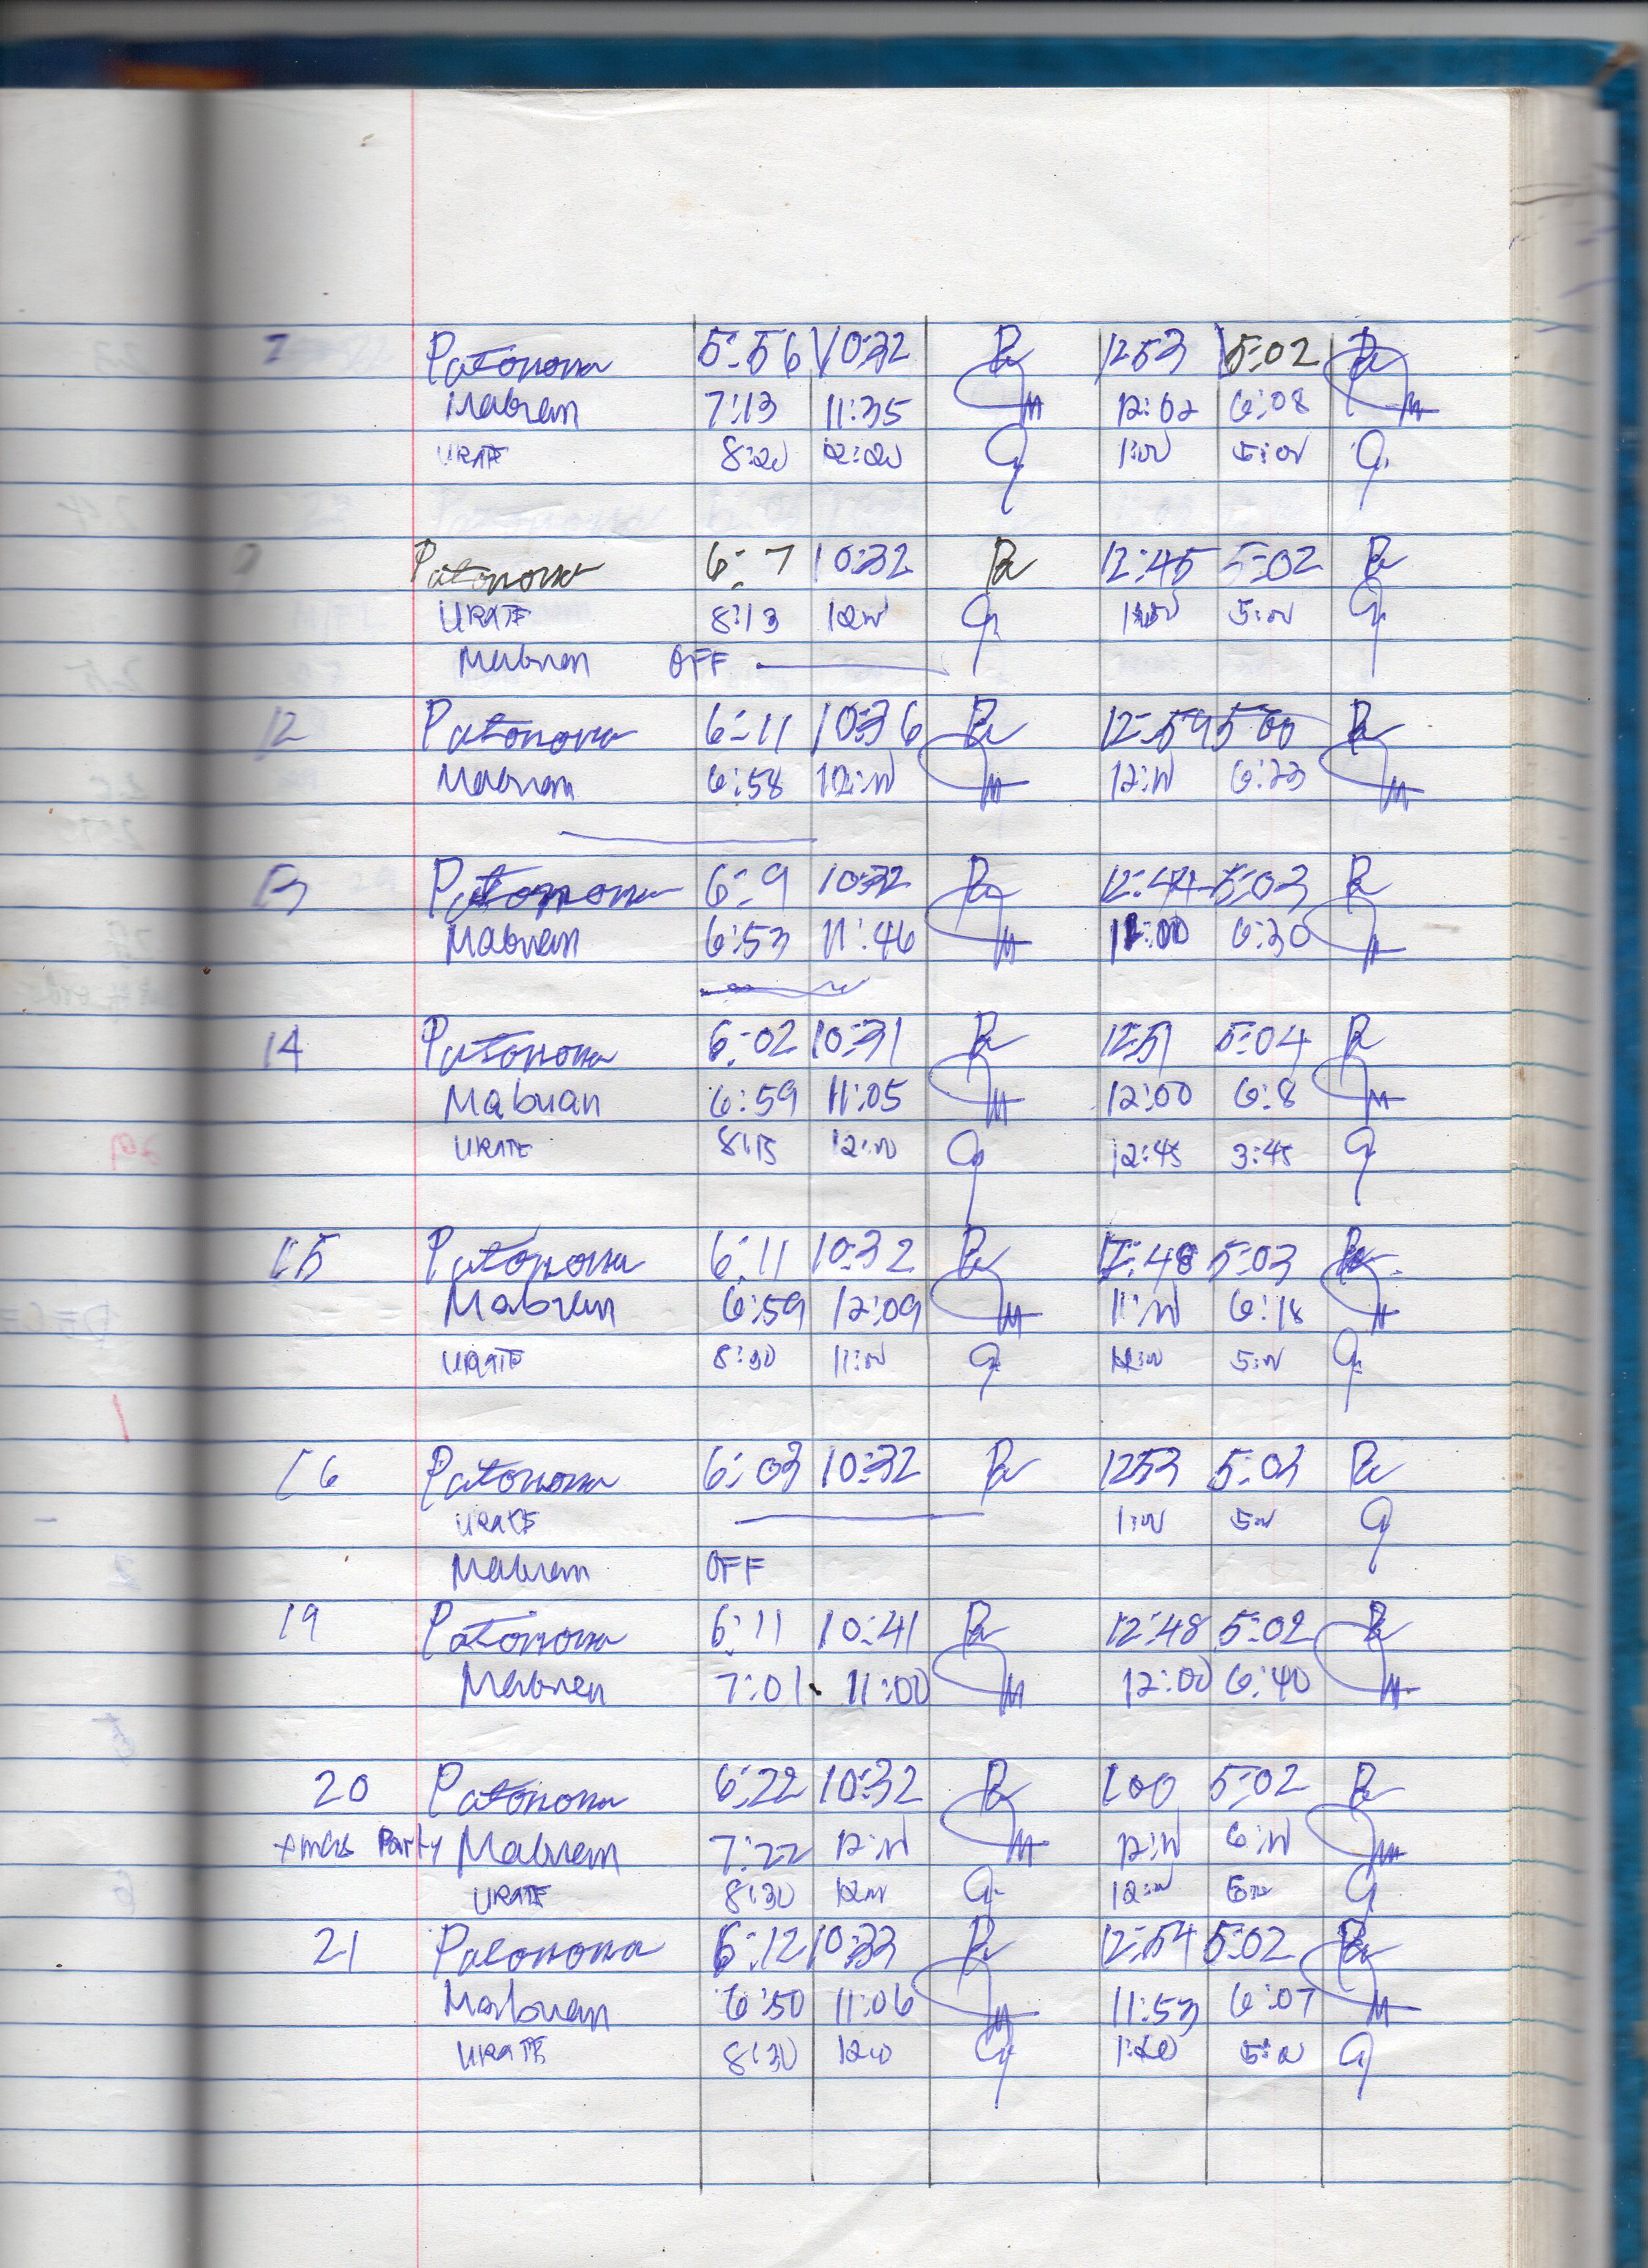 7 Patonona 5:56 10:32 Pa 12:53 5:02 Pa
Mabuan 7:13 11:35 M 12:02 6:08 M
URATE 8:20 12:00 1:00 5:00
Patonona 6:7 10:32 Pa 12:45 5:02 Pa
URATE 8:13 12:00 5:00
Mabuan OFF
12 Patonona 6:11 10:36 Pa 12:59 5:00 Pa
Mabuan 6:58 12:00 M 12:00 6:23 M
13 Patonona 6:9 10:32 Pa 12:44 5:03 Pa
Mabuan 6:53 11:46 M 6:30 M
14 Patonona 6:02 10:31 Pa 12:51 5:04 Pa
Mabuan 6:59 11:05 M 12:00 6:8 M
URATE 8:15 12:00 12:45 3:45
15 Patonona 6:11 10:32 Pa 12:48 5:03 Pa
Mabuan 6:59 12:09 M 11:00 6:18 M
URATE 8:30 11:00 12:00 5:00
16 Patonona 6:03 10:32 Pa 12:53 5:03 Pa
URATE 1:00 5:00
Mabuan OFF
19 Patonona 6:11 10:41 Pa 12:48 5:02 Pa
Mabuan 7:01 11:00 M 12:00 6:40 M
20 Patonona 6:22 10:32 Pa 1:00 5:02 Pa
xmas Party Mabuan 7:22 12:00 M 12:00 6:00 M
URATE 8:30 12:00 12:00
21 Patonona 6:12 10:33 Pa 12:54 5:02 Pa
Mabuan 6:50 11:06 M 11:53 6:07 M
URATE 8:30 12:00 5:00